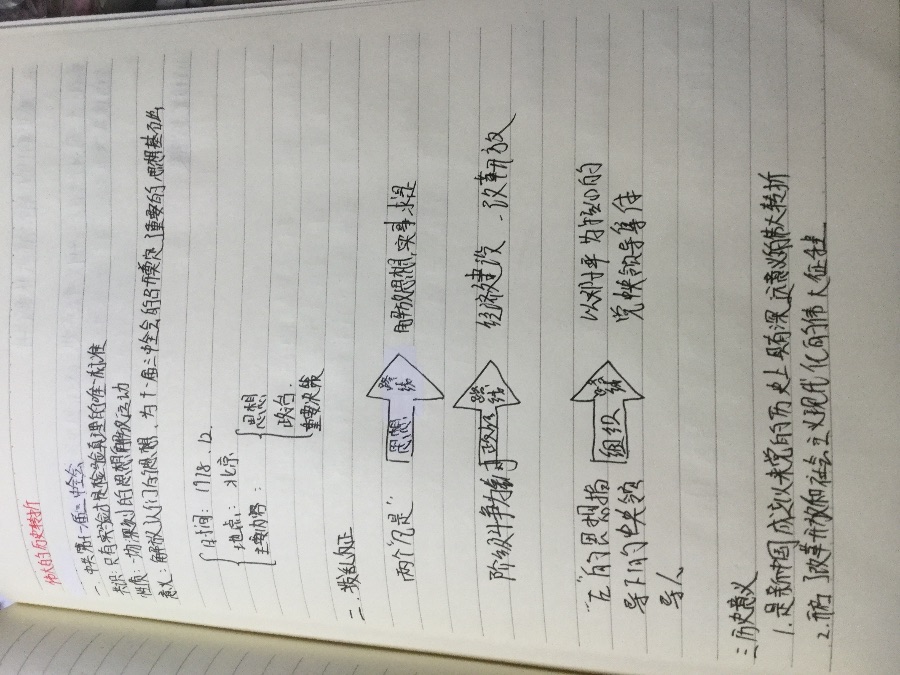 伟大的历史转折
一、中共第十一届三中全会
共识：只有实验才是检验真理的唯一标准
性质：一场深刻的思想解放运动
意义：解放人们的思想，为十一届三中全会的召开奠定了重要的思想基础
时间：1978.12.
地点：北京
主要内容：
思想
政治
重要决策
二、拨乱反正
两个"凡是"
思想
路线
解放思想，实事求是
阶级斗争为纲
政治
路线
经济建设、改革开放
"左"的思想指
导下的中央领
导人
组织
路线
以邓小平为核心的
党中央领导集体
三历史意义
1.是新中国成立以来党的历史上具有深远意义的伟大转折
2.开启了改革开放和社会主义现代化的伟大征程